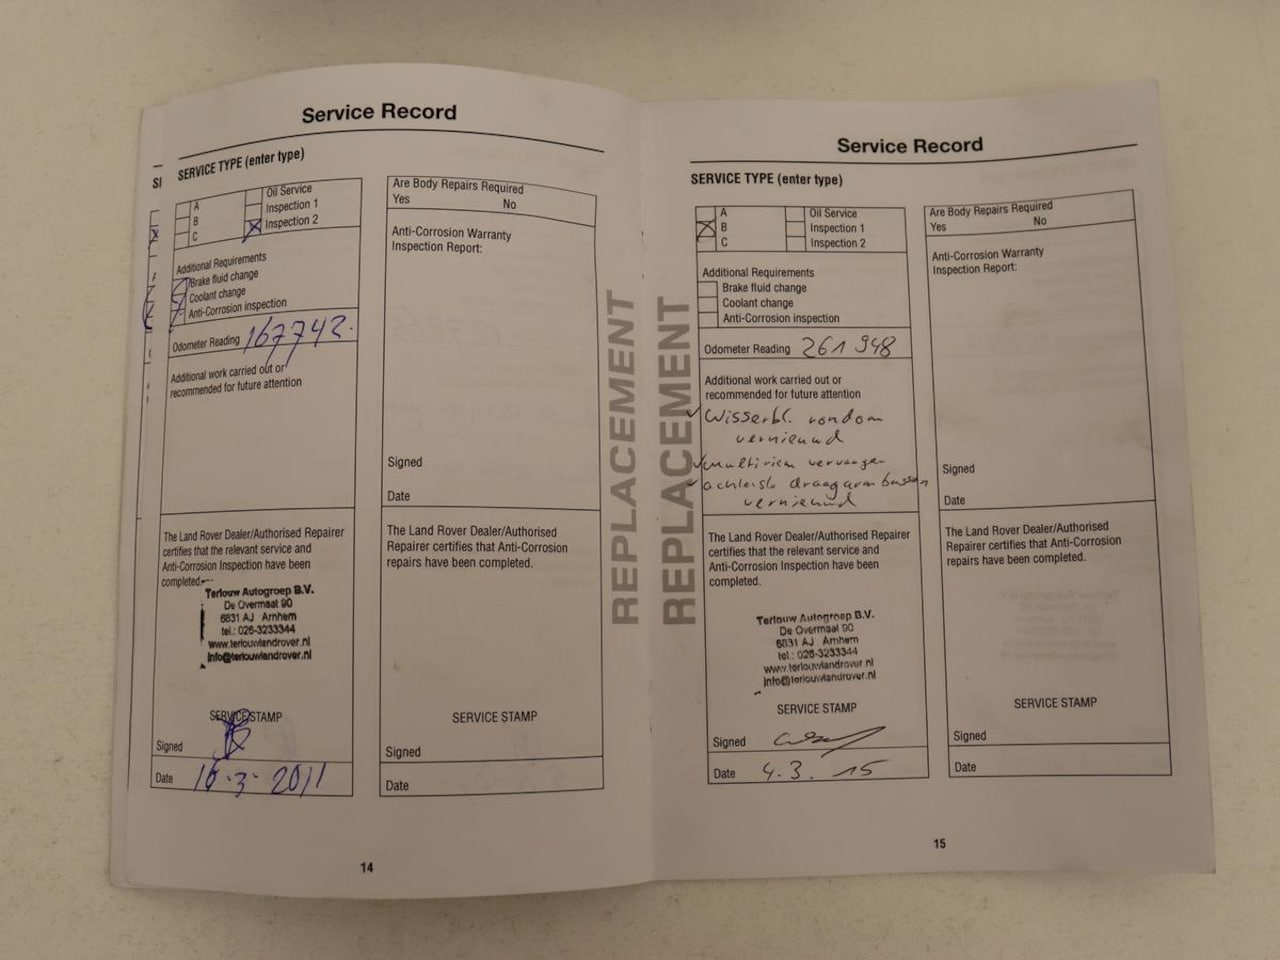 Service Record
SERVICE TYPE (enter type)
SI
A
B
C
Oil Service
Inspection 1
Inspection 2
Additional Requirements
Brake fluid change
Coolant change
Anti-Corrosion inspection
Odometer Reading 167742.
Additional work carried out or
recommended for future attention
The Land Rover Dealer/Authorised Repairer
certifies that the relevant service and
Anti-Corrosion Inspection have been
completed.
Terlouw Autogroep B.V.
De Overmaat 90
6831 AJ Arnhem
tel.: 026-3233344
www.terlouwlandrover.nl
info@terlouwlandrover.nl
SERVICE STAMP
Signed
Date 16-3-2011
Are Body Repairs Required
Yes No
Anti-Corrosion Warranty
Inspection Report:
Signed
Date
The Land Rover Dealer/Authorised
Repairer certifies that Anti-Corrosion
repairs have been completed.
SERVICE STAMP
Signed
Date
REPLACEMENT
14
REPLACEMENT
Service Record
SERVICE TYPE (enter type)
A
B
C
Oil Service
Inspection 1
Inspection 2
Additional Requirements
Brake fluid change
Coolant change
Anti-Corrosion inspection
Odometer Reading 261948
Additional work carried out or
recommended for future attention
Wisserbl. rondom
vernieuwd
multiriem vervangen
achterste draagarm bussen
vernieuwd
The Land Rover Dealer/Authorised Repairer
certifies that the relevant service and
Anti-Corrosion Inspection have been
completed.
Terlouw Autogroep B.V.
De Overmaat 90
6831 AJ Arnhem
tel.: 026-3233344
www.terlouwlandrover.nl
info@terlouwlandrover.nl
SERVICE STAMP
Signed
Date 4.3.15
Are Body Repairs Required
Yes No
Anti-Corrosion Warranty
Inspection Report:
Signed
Date
The Land Rover Dealer/Authorised
Repairer certifies that Anti-Corrosion
repairs have been completed.
SERVICE STAMP
Signed
Date
15